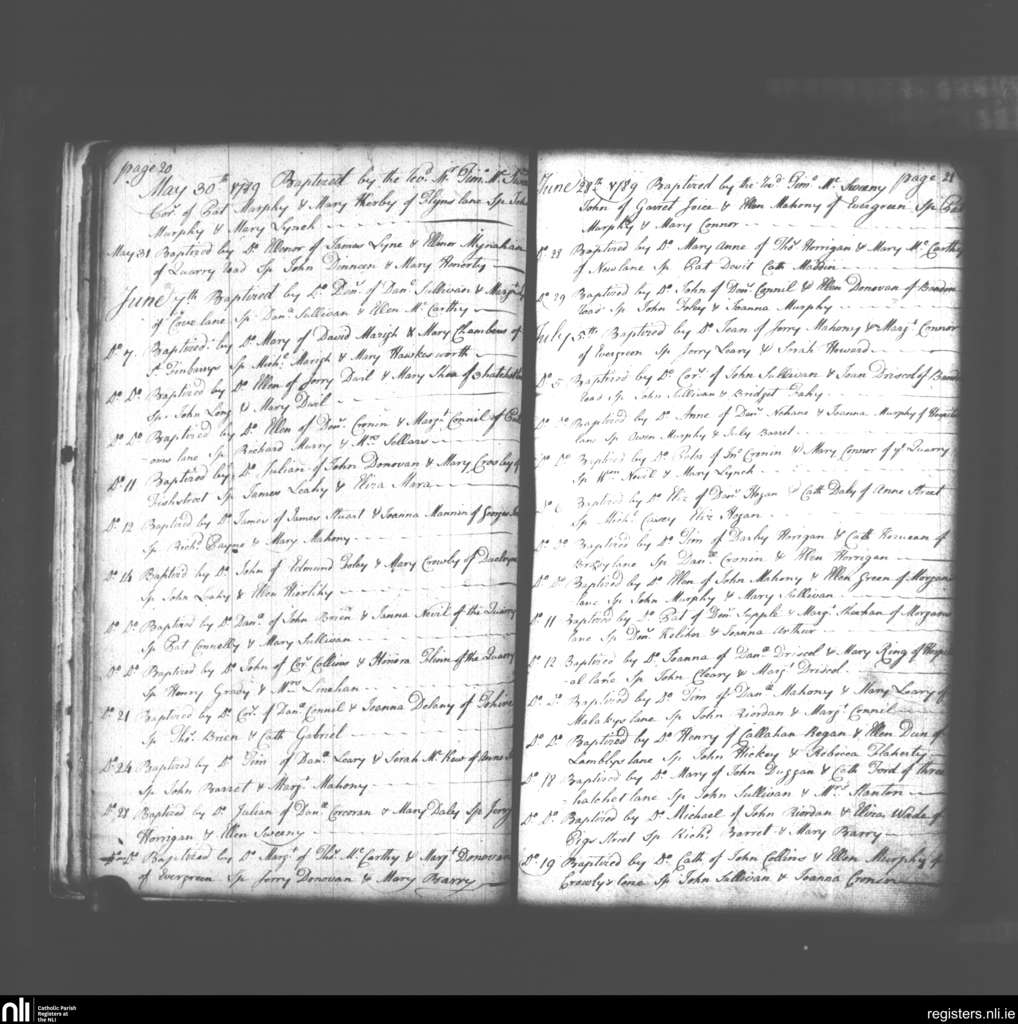 page 20
May 30th 1789 Baptized by the Revd Mr Timo Mc
Cors of Pat Murphy & Mary Kerby of Flyns lane Sp John
Murphy & Mary Lynch
May 31 Baptized by Do Ellenor of James Lyne & Ellenor
of Quarry road Sp John Dinneen & Mary
June 7th Baptized by Do Denis of Danl Sullivan & Margt
of Cove lane Sp Danl Sullivan & Ellen Mc Carthy
Do 7 Baptized by Do Mary of David & Mary Chambers of
St Finbarrys Sp Michl & Mary Hawkesworth
Do Do Baptized by Do Ellen of Jerry & Mary Shea of 3 hatchet
Sp John Long & Mary
Do Do Baptized by Do Ellen of Denis Cronin & Margt Connil of
lane Sp Richard Murry & Mrs Sellars
Do 11 Baptized by Do Julian of John Donovan & Mary Crowley of
Sp James Leahy & Eliza Mara
Do 12 Baptized by Do James of James Stuart & Joanna of Georges
Sp Richd Payne & Mary Mahony
Do 14 Baptized by Do John of Edmund Foley & Mary Crowly of
Sp John Leahy & Ellen Herlihy
Do Do Baptized by Do Danl of John Brien & Joanna of the Quarry
Sp Pat Connelly & Mary Sullivan
Do Do Baptized by Do John of Cors Collins & Honora Flinn of the Quarry
Sp Henry Grady & Mrs Linehan
Do 21 Baptized by Do Cors of Danl Connil & Joanna Delany of
Sp Thos Brien & Cath Gabriel
Do 24 Baptized by Do Tim of Danl Leary & Sarah of Anne St
Sp John Barret & Margt Mahony
Do 28 Baptized by Do Julian of Danl Corcoran & Mary Daly Sp Jerry
Horrigan & Ellen Sweeny
Do Baptized by Do Margt of Thos Mc Carthy & Margt Donovan
of Evergreen Sp Jerry Donovan & Mary Barry
June 28th 1789 Baptized by the Revd Timo Mc Sweeny page 21
John of Garret Joice & Ellen Mahony of Evergreen Sp
Murphy & Mary Connor
Do 28 Baptized by Do Mary Anne of Thos Horrigan & Mary Mc Carthy
of New lane Sp Pat Cath Madden
Do 29 Baptized by Do John of Denis Connil & Ellen Donovan of Bandon
road Sp John Foley & Joanna Murphy
July 5th Baptized by Do Joan of Jerry Mahony & Margt Connor
of Evergreen Sp Jerry Leary & Sarah Howard
Do 5 Baptized by Do Cors of John Sullivan & Joan Driscol of Bandon
road Sp John Sullivan & Bridget Fahy
Do Baptized by Do Anne of Danl & Joanna Murphy of
lane Sp Owen Murphy & July Barret
Do Do Baptized by Do of Jno Cronin & Mary Connor of ye Quarry
Sp Wm & Mary Lynch
Do Baptized by Do Eliz of Danl Hogan & Cath Daly of Anne Street
Sp Michl Casey Eliz Hogan
Do Do Baptized by Do Tim of Darby Horigan & Cath of
lane Sp Danl Cronin & Ellen Horrigan
Do Do Baptized by Do Ellen of John Mahony & Ellen Green of Morgans
lane Sp John Murphy & Mary Sullivan
Do 11 Baptized by Do Pat of Denis Supple & Margt Sheehan of Morgans
lane Sp Denis & Joanna Arthur
Do 12 Baptized by Do Joanna of Danl Driscol & Mary Ring of
al lane Sp John Cleary & Margt Driscol
Do Do Baptized by Do Tim of Danl Mahony & Mary Leary of
Malachys lane Sp John Riordan & Margt Connil
Do Do Baptized by Do Henry of Callahan Regan & Ellen of
Lamblys lane Sp John Hickey & Rebecca Flaherty
Do 18 Baptized by Do Mary of John Duggan & Cath Ford of three
hatchet lane Sp John Sullivan & Mrs Stanton
Do Do Baptized by Do Michael of John Riordan & Eliza of
Pigs Street Sp Richd Barret & Mary Barry
Do 19 Baptized by Do Cath of John Collins & Ellen Murphy of
Crowlys lane Sp John Sullivan & Joanna Cronin
nli Catholic Parish
Registers at
the NLI
registers.nli.ie